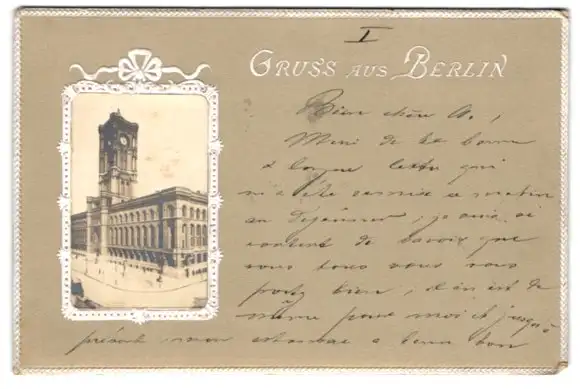 I
GRUSS AUS BERLIN
Bien chère A.,
Merci de ta bonne
& longue lettre qui
m'a été remise ce matin
au déjeuner, je suis si
content de savoir que
vous tous vous vous
portez bien, il en est de
même pour moi et jusqu'à
présent mon estomac a tenu bon